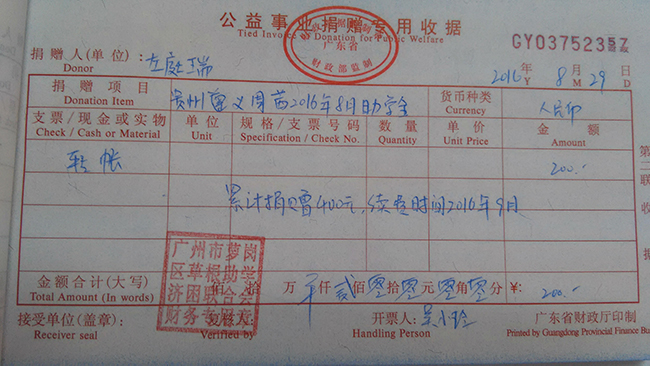 公益事业捐赠专用收据
Tied Invoice of Donation for Public Welfare
广东省
财政部监制
GY03752357
捐赠人(单位): 左庭瑞
Donor
2016年 8月 29日
Y M D
捐赠项目 贵州遵义周茜2016年8月助学金 货币种类 人民币
Donation Item Currency
支票/现金或实物 单位 规格/支票号码 数量 单价 金额
Check / Cash or Material Unit Specification / Check No. Quantity Unit Price Amount
转帐 200.-
累计捐赠400元,续费时间2016年9月
第二联 收据
广州市萝岗
区草根助学
济困联合会
财务专用章
金额合计(大写) 佰 拾 万 仟贰佰零拾零元零角零分 ¥: 200.-
Total Amount (In words)
接受单位(盖章): 复核人: 开票人: 吴小玲 广东省财政厅印制
Receiver seal Verified by Handling Person Printed by Guangdong Provincial Finance Bu